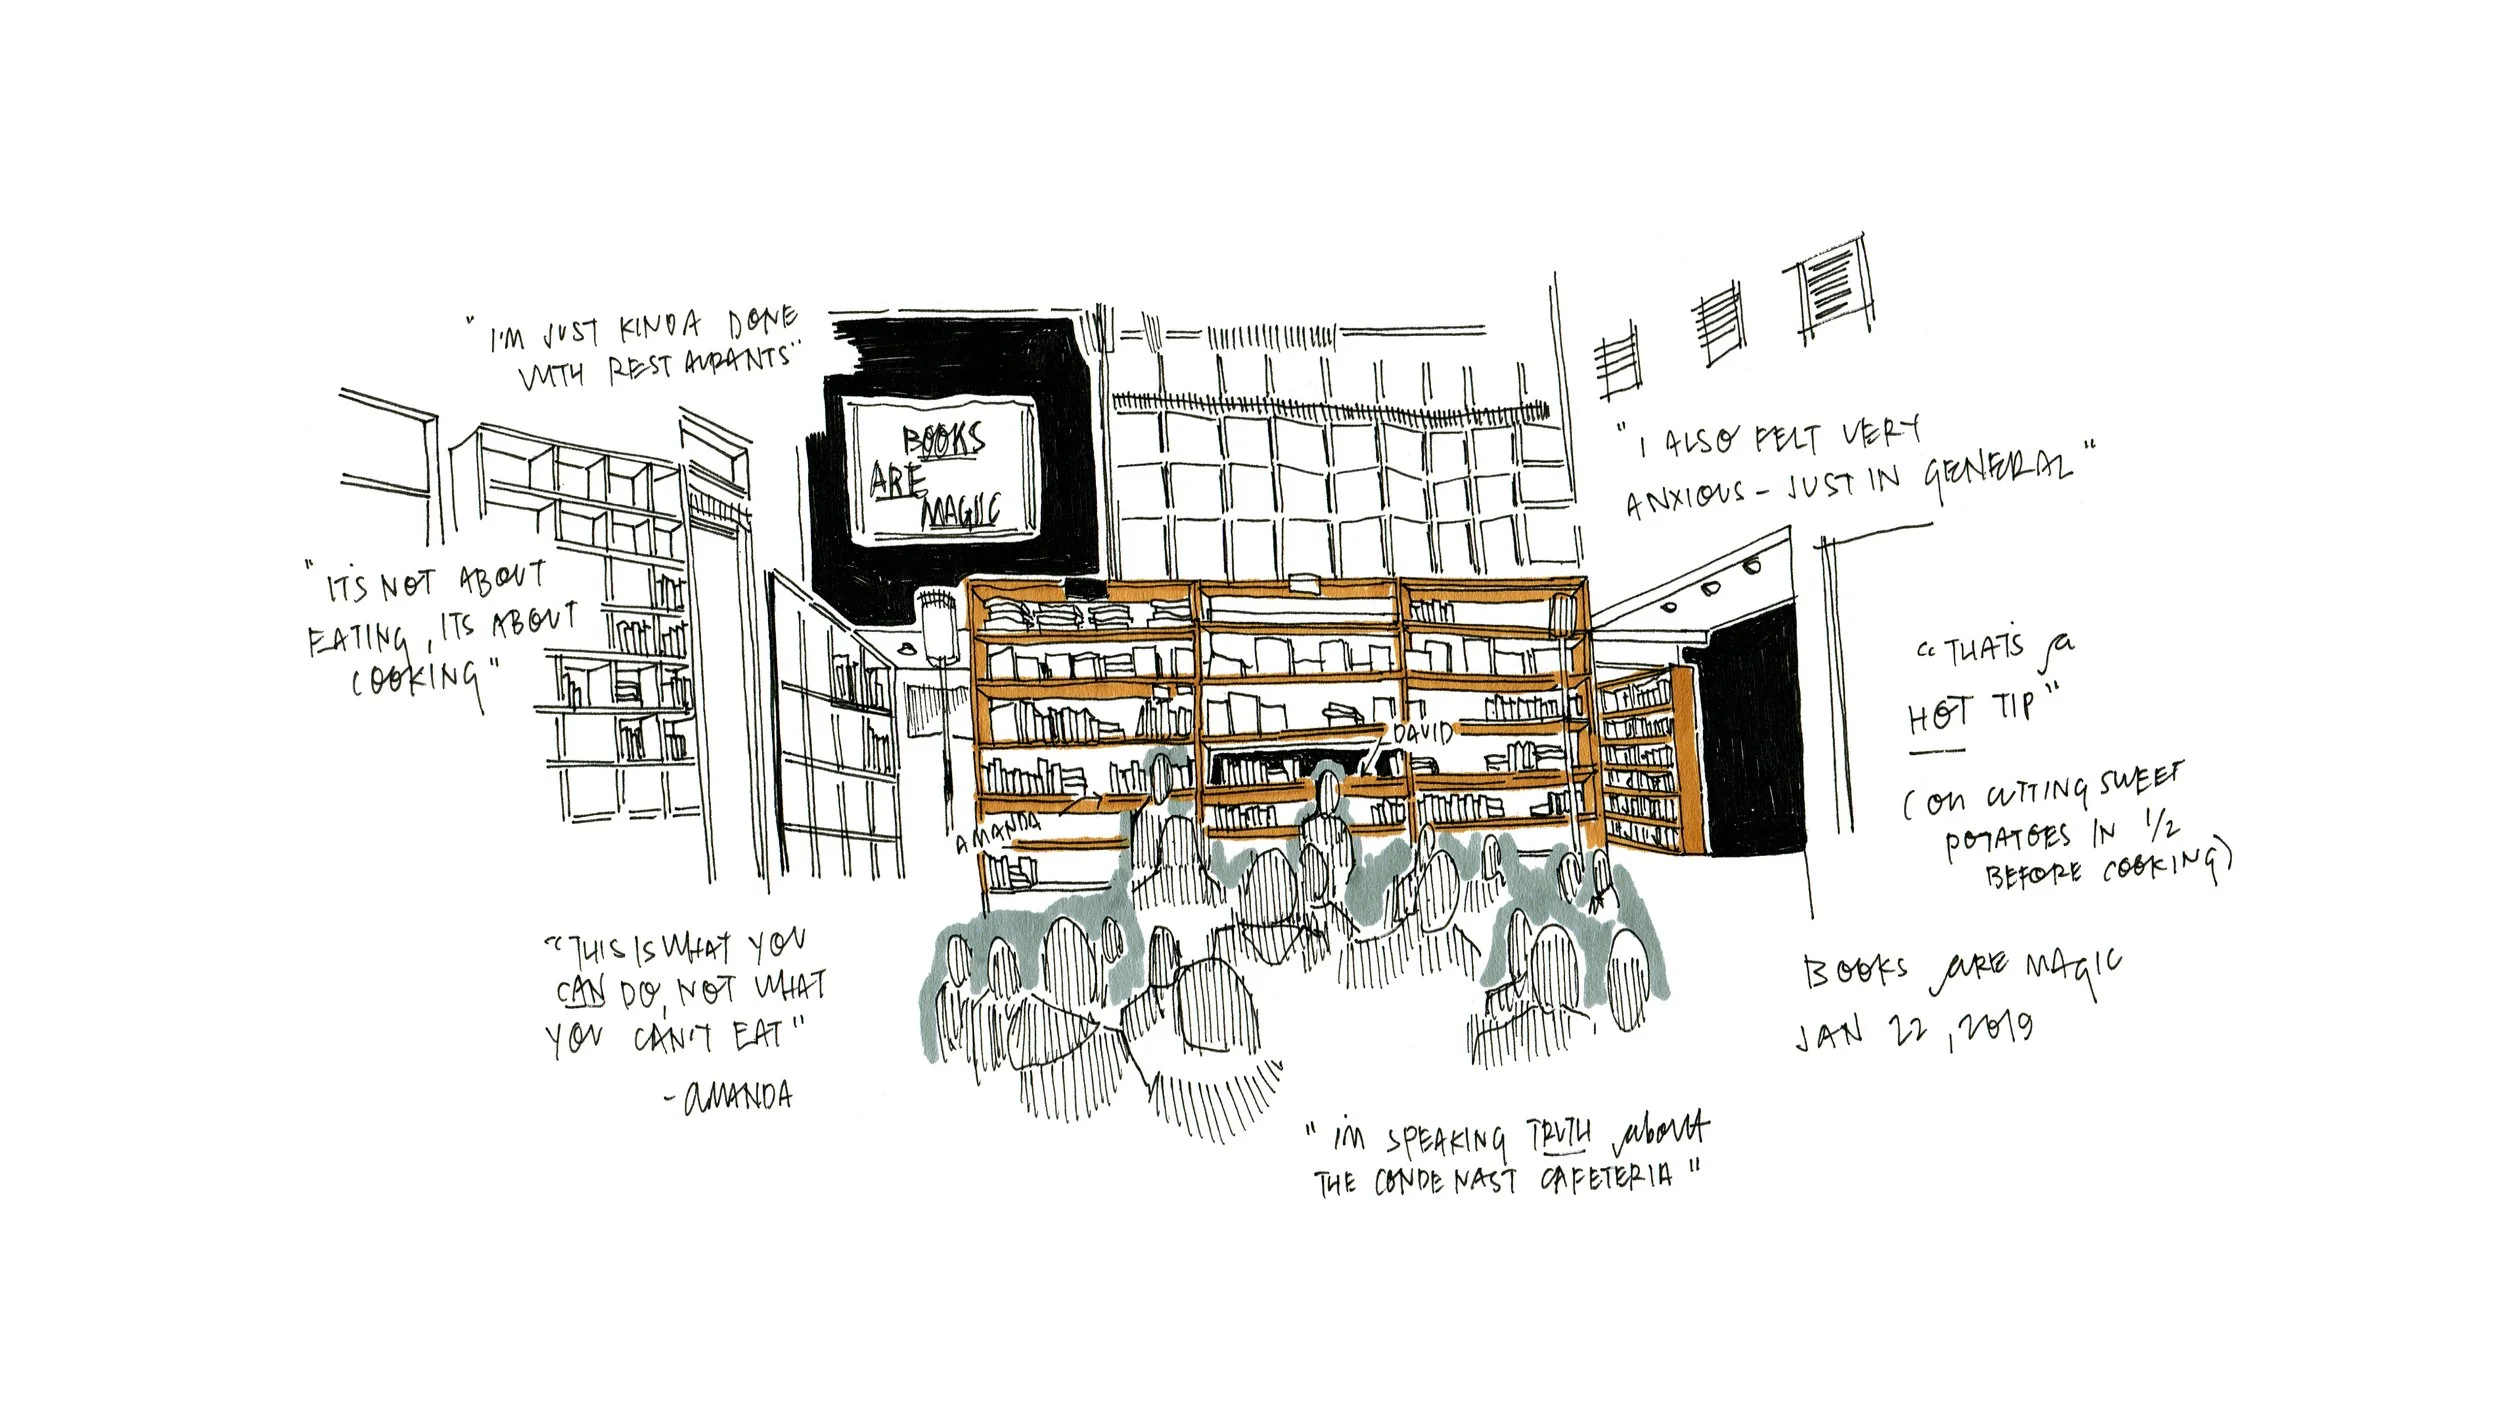 "I'M JUST KINDA DONE
WITH RESTAURANTS"
BOOKS
ARE
MAGIC
"I ALSO FELT VERY
ANXIOUS - JUST IN GENERAL"
"IT'S NOT ABOUT
EATING, ITS ABOUT
COOKING"
"THAT'S a
HOT TIP"
(ON CUTTING SWEET
POTATOES IN 1/2
BEFORE COOKING)
DAVID
AMANDA
"THIS IS WHAT YOU
CAN DO, NOT WHAT
YOU CAN'T EAT"
- AMANDA
BOOKS ARE MAGIC
JAN 22, 2019
"I'M SPEAKING TRUTH about
THE CONDE NAST CAFETERIA"